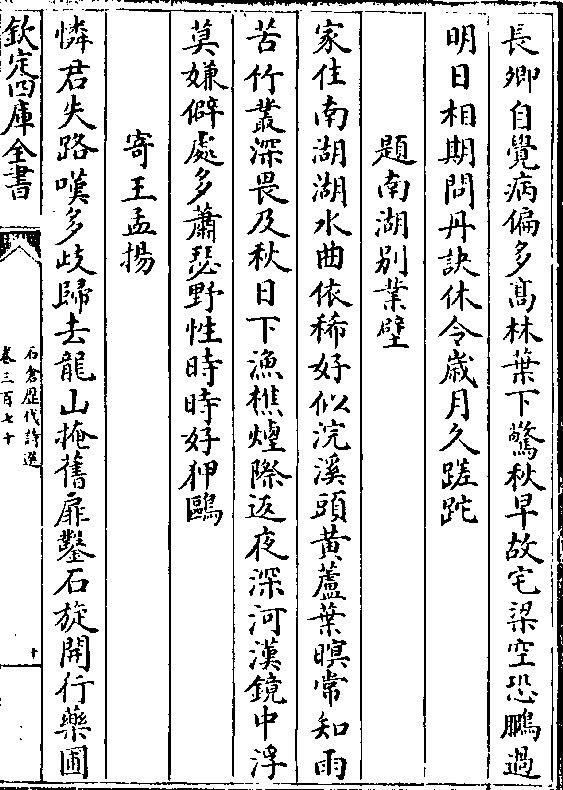 長卿自覺病偏多髙林葉下驚秋早故宅梁空恐鵩過
明日相期問丹訣休令歲月久蹉跎
題南湖别業壁
家住南湖湖水曲依稀好似浣溪頭黄蘆葉暝常知雨
苦竹叢深畏及秋日下漁樵煙際返夜深河漢鏡中浮
莫嫌僻處多蕭瑟野性時時好狎鷗
寄王孟揚
憐君失路嘆多歧歸去龍山掩舊扉鑿石旋開行藥圃
欽定四庫全書
石倉歴代詩選
卷三百七十
十